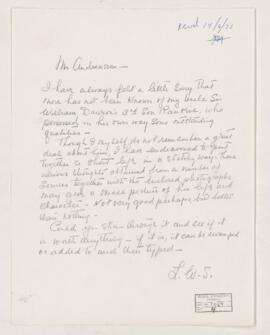 Mr Andreassen —
I have always felt a little sorry that
more has not been known of my uncle Sir
William Dawson's 3rd Son Rankine, who
possessed in his own way some outstanding
qualities —
Though I myself do not remember a great
deal about him, I have endeavored to put
together a short life in a sketchy way. These
various thoughts obtained from a number of
sources together with the enclosed photographs
may give a small picture of his life and
character — Not very good perhaps, but better
than nothing —
Could you skim through it and see if it
is worth anything — if it is, it can be revamped
or added to and then typped —
L. W. S.